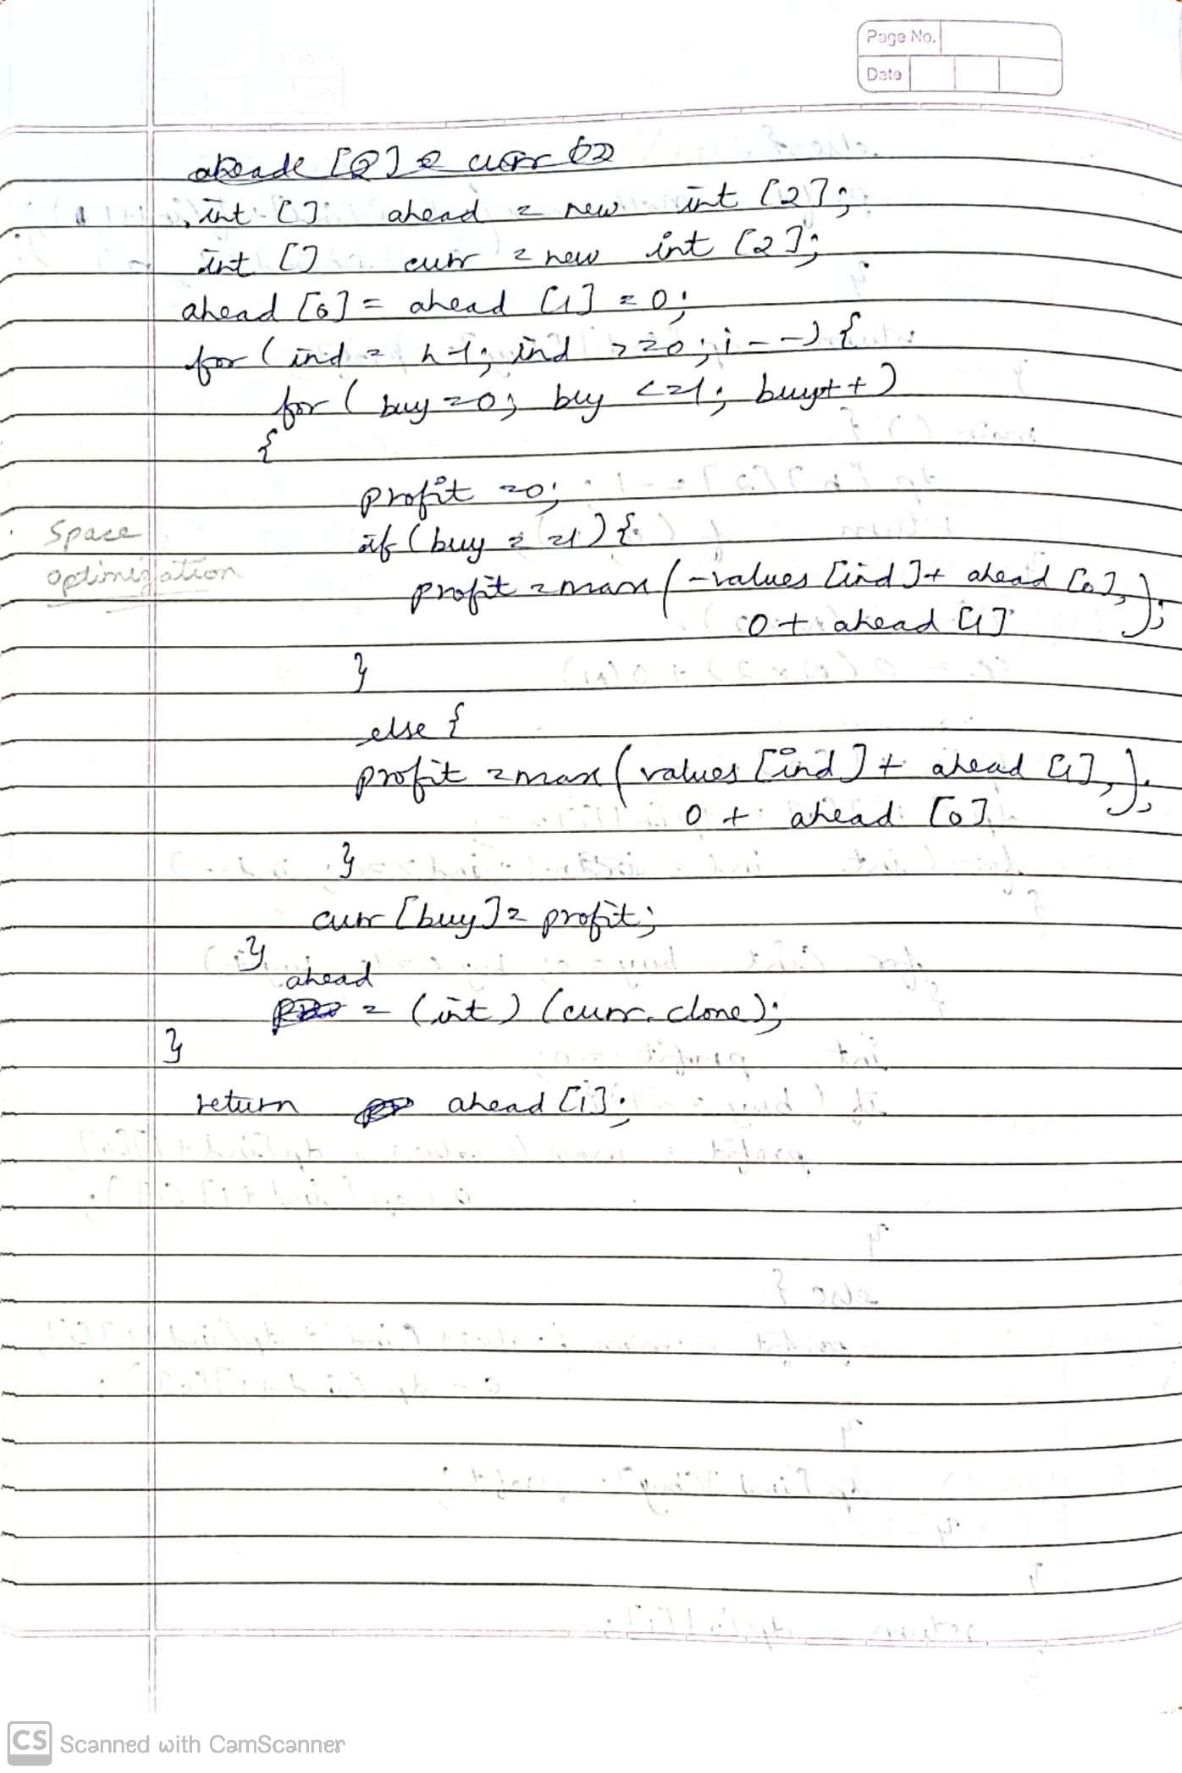 Page No.
Date
int [] ahead = new int [2];
int [] curr = new int [2];
ahead [0] = ahead [1] = 0;
for ( ind = n-1; ind >=0; i--) {
for ( buy=0; buy <=1; buy++)
{
profit =0;
Space
if (buy = =1) {
optimization
profit = max ( -values [ind] + ahead [0],
0 + ahead [1] );
}
else {
profit = max ( values [ind] + ahead [1],
0 + ahead [0] );
}
curr [buy] = profit;
}
ahead
= (int) (curr.clone);
}
return ahead [1];
CS Scanned with CamScanner